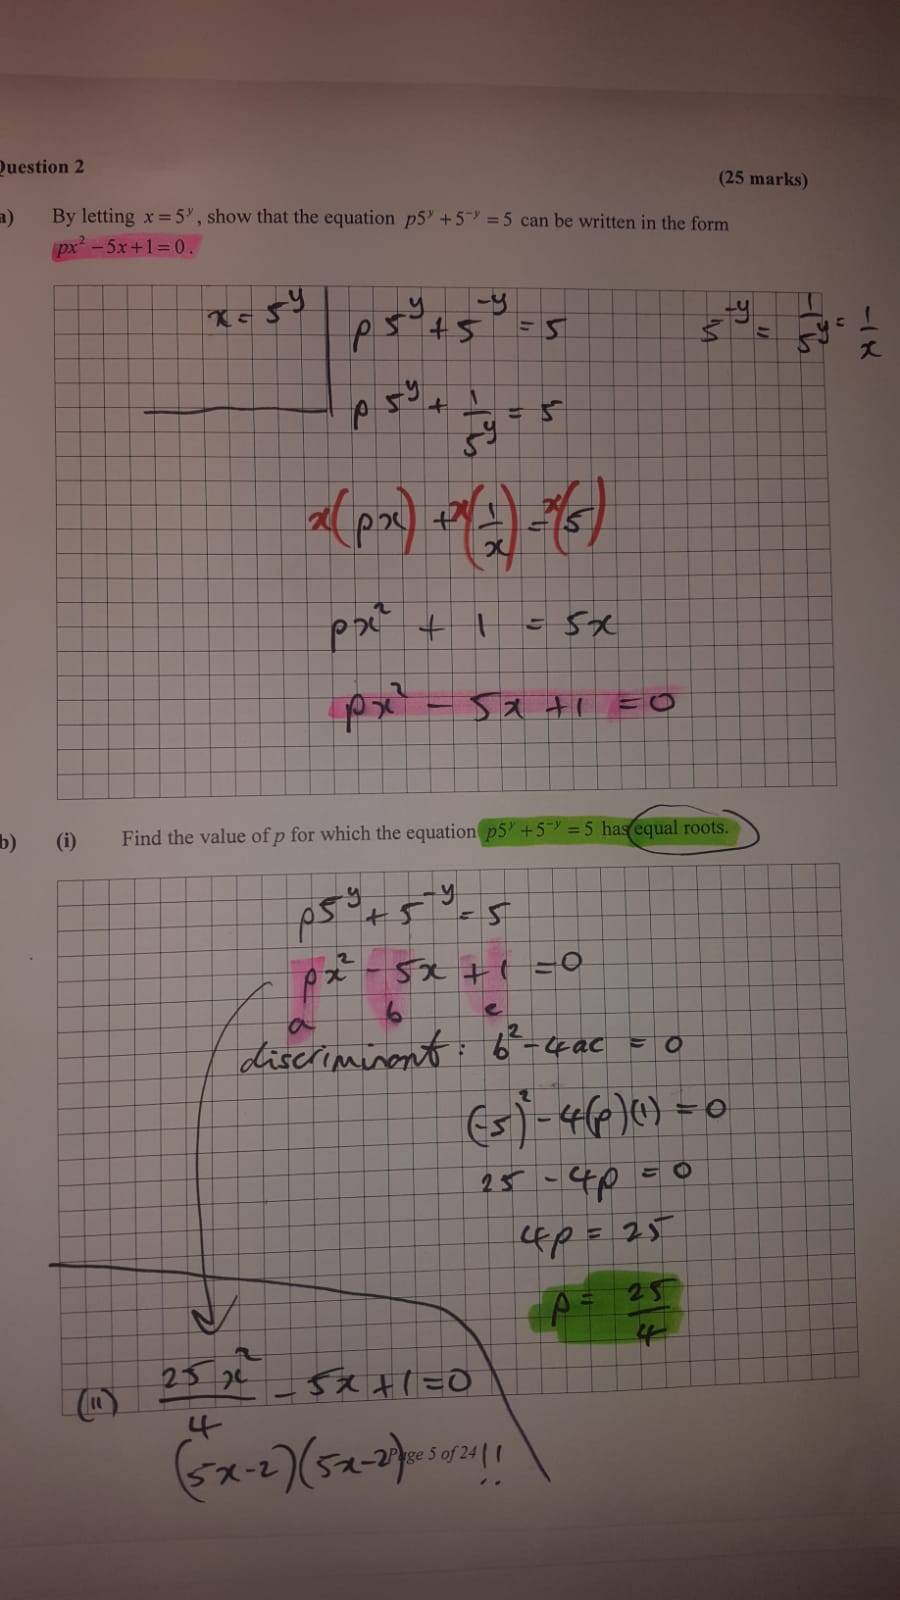 Question 2
(25 marks)
a) By letting x = 5^y, show that the equation p5^y + 5^-y = 5 can be written in the form
px² − 5x + 1 = 0.
x = 5^y
p 5^y + 5^-y = 5
5^-y = 1/5^y = 1/x
p 5^y + 1/5^y = 5
x(px) + x(1/x) = x(5)
px² + 1 = 5x
px² − 5x + 1 = 0
b) (i) Find the value of p for which the equation p5^y + 5^-y = 5 has equal roots.
p5^y + 5^-y = 5
px² − 5x + 1 = 0
a b c
discriminant : b² − 4ac = 0
(−5)² − 4(p)(1) = 0
25 − 4p = 0
4p = 25
p = 25/4
(ii) 25x²/4 − 5x + 1 = 0
(5x−2)(5x−2) !!
Page 5 of 24